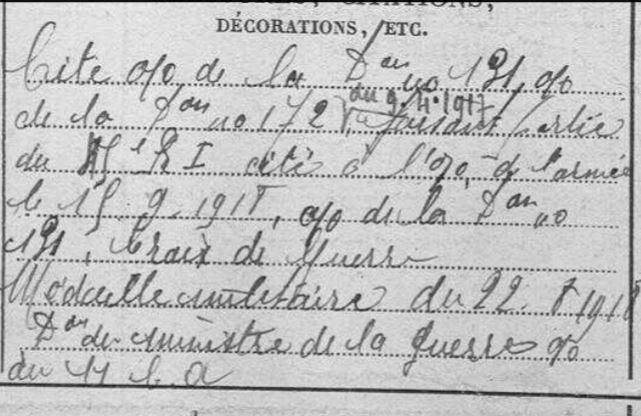 DÉCORATIONS, ETC.
Cité o/o de la Don no 131, o/o
du 9.4.1917
de la Don no 172 faisant partie
du R I cité à l'o/o de l'armée
le 15.9.1918, o/o de la Don no
131, Croix de Guerre
Médaille militaire du 22. 1918
Don du ministre de la guerre o/o
du